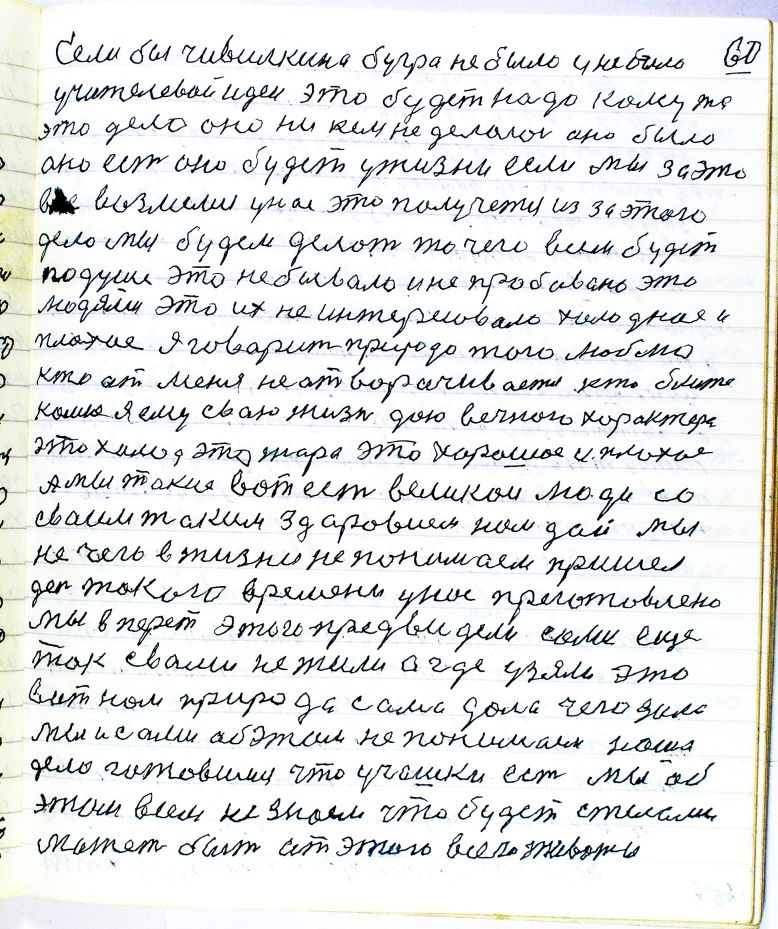 Если бы чивилкина бугра не было у не было 60
учителевой идеи это будет надо кому та
это дело оно ни кем не делолос ано было
ано ест оно будет ужизни если мы за это
возмемся унас это получется из за этого
дело мы будем делот то чего всем будет
подуши это небывало и не пробовано это
людями это их не интересовало холодное и
плохое я говорит природо того люблю
кто ат меня не атворачивается кто
комя я ему сваю жизн дою вечного характера
это холод это жара это хорошое и плохое
а мы такие вот ест великои люди со
сваим таким здаровием ном дай мы
не чего в жизни не понимаем пришел
ден такого времени унас преготовлено
мы вперет этого предвидели сами еще
так свами не жили а где узяли это
вит ном природа сама дола чего
мы и сами аб этом не понимаем наша
дело готовится что учашки ест мы об
этом всем не знаем что будет стелами
может быт ат этого всего животы